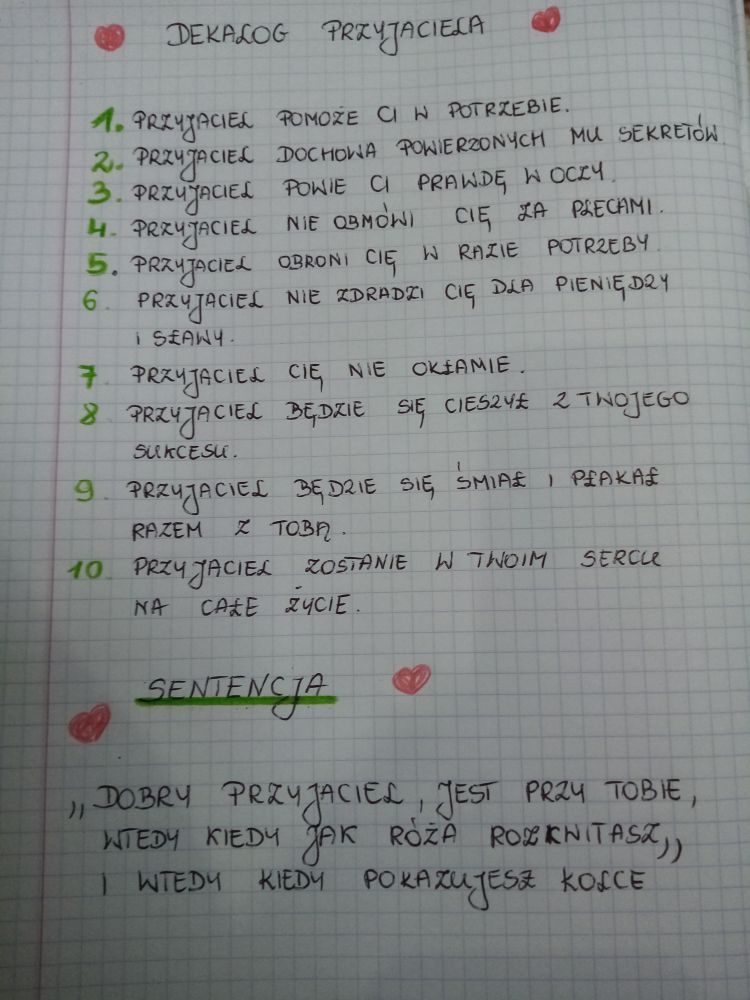 DEKALOG PRZYJACIELA
1. PRZYJACIEL POMOŻE CI W POTRZEBIE.
2. PRZYJACIEL DOCHOWA POWIERZONYCH MU SEKRETÓW.
3. PRZYJACIEL POWIE CI PRAWDĘ W OCZY.
4. PRZYJACIEL NIE OBMÓWI CIĘ ZA PLECAMI.
5. PRZYJACIEL OBRONI CIĘ W RAZIE POTRZEBY.
6 PRZYJACIEL NIE ZDRADZI CIĘ DLA PIENIĘDZY
I SŁAWY.
7 PRZYJACIEL CIĘ NIE OKŁAMIE.
8 PRZYJACIEL BĘDZIE SIĘ CIESZYŁ Z TWOJEGO
SUKCESU.
9. PRZYJACIEL BĘDZIE SIĘ ŚMIAŁ I PŁAKAŁ
RAZEM Z TOBĄ.
10. PRZYJACIEL ZOSTANIE W TWOIM SERCU
NA CAŁE ŻYCIE.
SENTENCJA
,,DOBRY PRZYJACIEL, JEST PRZY TOBIE,
WTEDY KIEDY JAK RÓŻA ROZKWITASZ,,
I WTEDY KIEDY POKAZUJESZ KOLCE